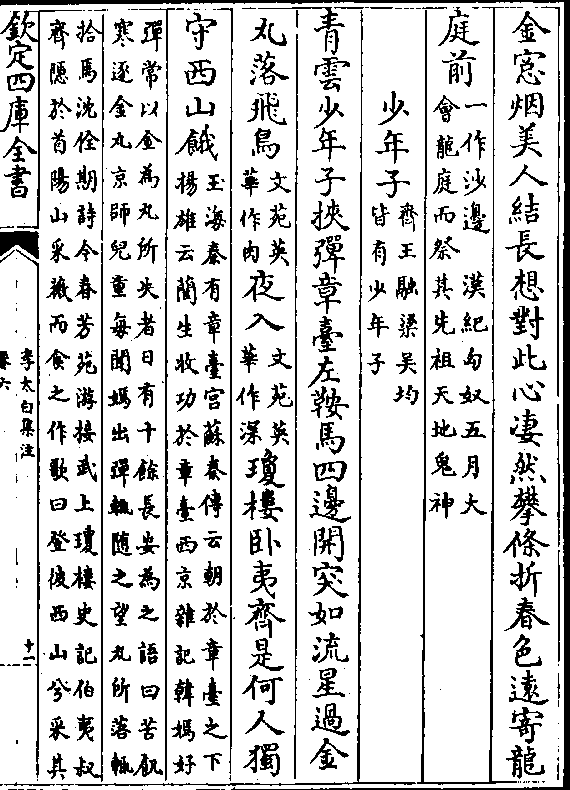 金窓烟美人結長想對此心凄然攀條折春色遠寄龍
庭前一作沙邊　漢紀匈奴五月大
會龍庭而祭其先祖天地鬼神
少年子齊王融梁吴均
皆有少年子
青雲少年子挾彈章臺左鞍馬四邊開突如流星過金
丸落飛鳥文苑英
華作肉夜入文苑英
華作深瓊樓卧夷齊是何人獨
守西山餓玉海秦有章臺宮蘇秦傳云朝於章臺之下
揚雄云藺生收功於章臺西京雜記韓嫣好
彈常以金為丸所失者日有十餘長安為之語曰苦飢
寒逐金丸京師兒童每聞嫣出彈輒随之望丸所落輒
拾焉沈佺期詩今春芳苑游接武上瓊樓史記伯夷叔
齊隱於首陽山采薇而食之作歌曰登彼西山兮采其
欽定四庫全書
李太白集注
卷六
十一